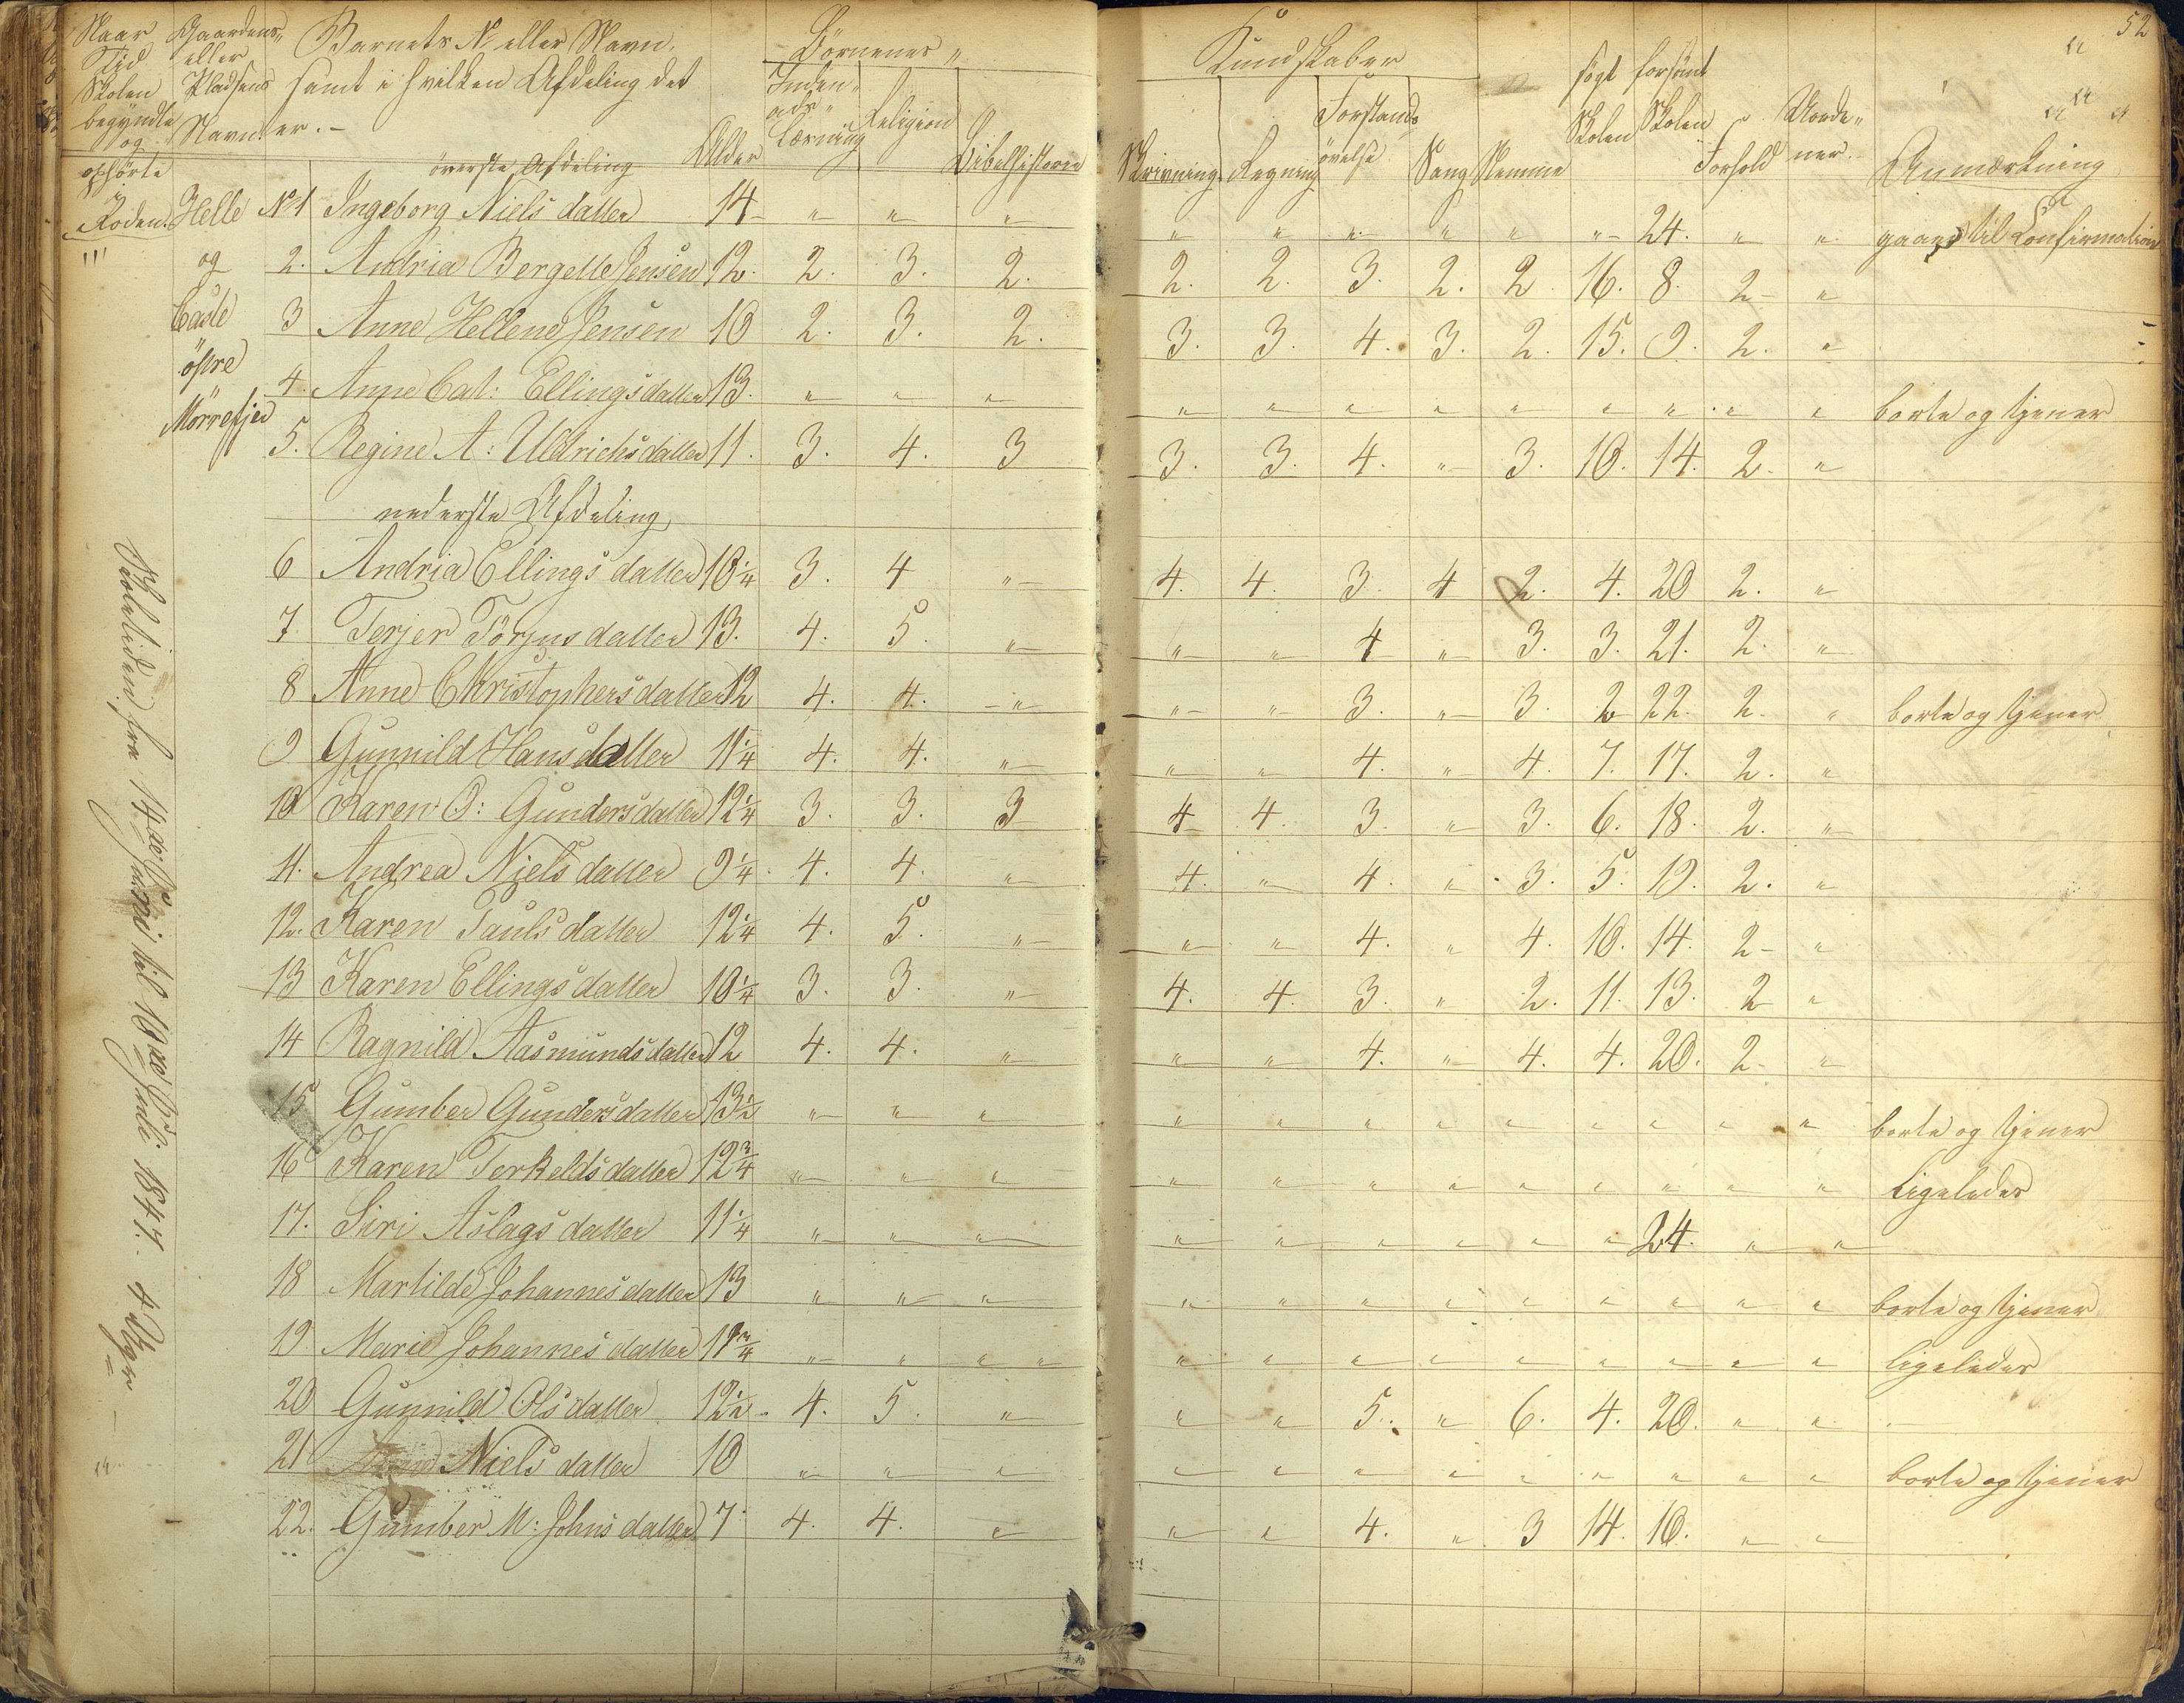 52
Naar Tid Skolen begyndte og ophörte i Roden.
Gaardens eller Pladsens Navn.
Barnets No eller Navn, samt i hvilken Afdeling det er. -
Alder
Börnenes „ Kundskaber
Inden-ads-Læsning
Religion
Bibelhistorie
Skrivning
Regning
Forstands-övelse
Sang
Stemme
sögt Skolen
forsömt Skolen
Forhold
Anmærkning
Helle og Casle öfre Mörrefjed
Skoletiden fra 14de Juni til 10de Juli 1847. 4 Uger
överste Afdeling
No 1 Ingeborg Niels datter 14 „ „ „ „ „ „ „ „ „ 24. „ „ gaaer til Confirmation
2. Andria Bergette Jensen 12. 2. 3. 2. 2. 2. 3. 2. 2 16. 8. 2 „
3 Anne Hellene Jensen 10 2. 3. 2. 3. 3. 4. 3. 2. 15. 9. 2. „
4. Anne Cat: Ellingsdatter 13. „ „ „ „ „ „ „ „ „ „ „ „ borte og tjener
5. Regine A: Uldrichsdatter 11. 3. 4. 3 3. 3. 4. „ 3. 10. 14. 2. „
nederste Afdeling
6 Andria Ellings datter 10 1/4 3. 4 „ 4. 4. 3. 4 2. 4. 20 2. „
7 Terjer Törjus datter 13. 4. 5. „ „ „ 4 „ 3. 3. 21. 2. „
8 Anne Christophersdatter 12 4. 4. „ „ „ 3. „ 3. 2 22. 2. „ borte og tjener
9 Gunnild Hans datter 11 1/4 4. 4. „ „ „ 4. „ 4. 7. 17. 2. „
10 Karen O: Gundersdatter 12 1/4 3. 3. 3 4 4. 3. „ 3. 6. 18. 2. „
11. Andrea Niels datter 9 1/4 4. 4. „ 4. „ 4. „ 3. 5. 19. 2. „
12. Karen Pauls datter 12 1/4 4. 5. „ „ „ 4. „ 4. 10. 14. 2 „
13 Karen Ellings datter 10 1/4 3. 3. „ 4. 4. 3. „ 2. 11. 13. 2 „
14 Ragnild Aasmunds datter 12 4. 4. „ „ „ 4. „ 4. 4. 20. 2. „
15 Gumber Gundersdatter 13 1/2 „ „ „ „ „ „ „ „ „ „ „ „ borte og tjener
16 Karen Terkelds datter 12 3/4 „ „ „ „ „ „ „ „ „ „ „ „ ligeledes
17. Siri Aslags datter 11 1/4 „ „ „ „ „ „ „ „ „ 24. „ „
18 Martilde Johannes datter 13 „ „ „ „ „ „ „ „ „ „ „ „ borte og tjener
19 Marie Johannes datter 11 3/4 „ „ „ „ „ „ „ „ „ „ „ „ ligeledes
20 Gunnild Ols datter 12 1/2 4. 5. „ „ „ 5. „ 6. 4. 20. „ „
21 Niels datter 10 „ „ „ „ „ „ „ „ „ „ „ „ borte og tjener
22. Gumber M: Johns datter 7 4. 4. „ „ „ 4. „ 3 14. 10. „ „